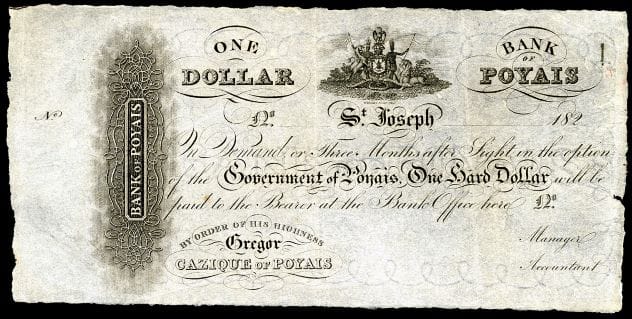 ONE
DOLLAR
BANK
OF
POYAIS
BANK OF POYAIS
No
No
St. Joseph
182
On Demand, or Three Months after Sight in the option
of the Government of Poyais, One Hard Dollar will be
paid to the Bearer at the Bank Office here No
BY ORDER OF HIS HIGHNESS
Gregor
CAZIQUE OF POYAIS
Manager
Accountant